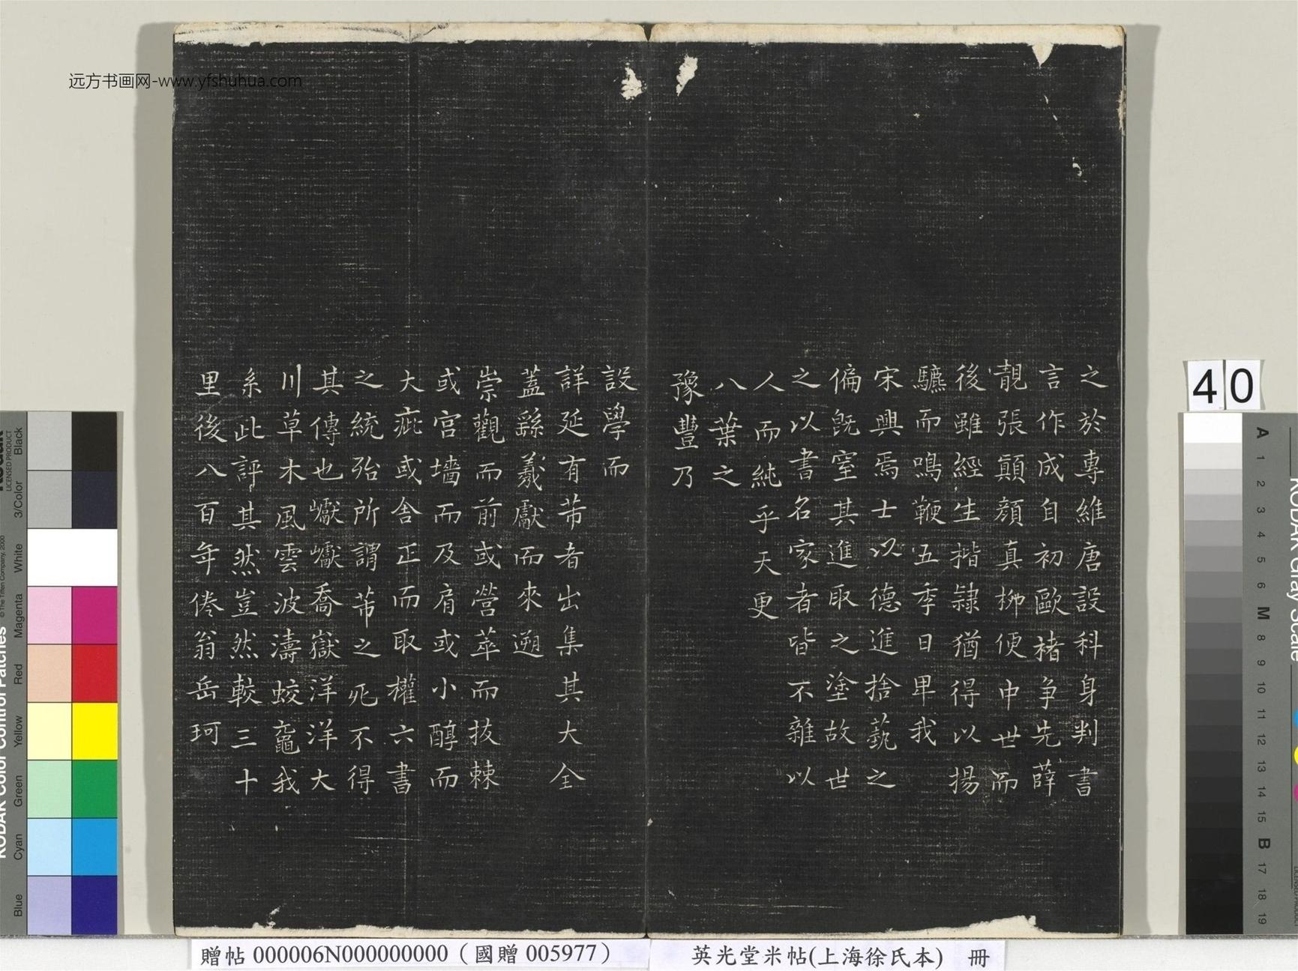 远方书画网-www.yfshuhua.com
之於專維唐設科身判書
言作成自初歐楮争先薛
靚張顛顔真栁便中世而
後雖經生揩隷猶得以揚
驪而鳴鞭五季日卑我
宋興焉士以德進捨藝之
偏既窒其進取之塗故世
之以書名家者皆不雜以
人而純乎天更
八葉之
豫豐乃
設學而
詳延有芾者出集其大全
蓋繇羲獻而來遡
崇觀而前或營萃而抜棘
或宫墻而及肩或小醇而
大疵或舍正而取權六書
之統殆所謂芾之死不得
其傳也巘巘喬嶽洋洋大
川草木風雲波濤蛟鼉我
系此評其然豈然較三十
里後八百年倦翁岳珂
40
贈帖 000006N000000000(國贈 005977)
英光堂米帖(上海徐氏本) 冊
KODAK Color Control Patches
LICENSED PRODUCT
© The Tiffen Company, 2000
Black
3/Color
White
Magenta
Red
Yellow
Green
Cyan
Blue
KODAK Gray Scale
A 1 2 3 4 5 6 M 8 9 10 11 12 13 14 15 B 17 18 19